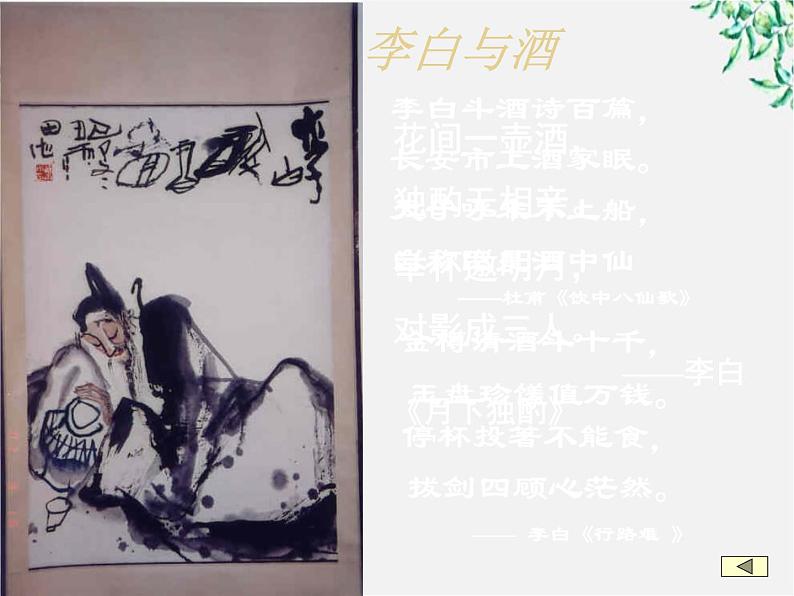 李白与酒
李白斗酒诗百篇，
长安市上酒家眠。
天子呼来不上船，
自称臣是酒中仙
——杜甫《饮中八仙歌》
金樽清酒斗十千，
玉盘珍馐值万钱。
停杯投著不能食，
拔剑四顾心茫然。
—— 李白《行路难 》
花间一壶酒，
独酌无相亲。
举杯邀明月，
对影成三人。
——李白
《月下独酌》